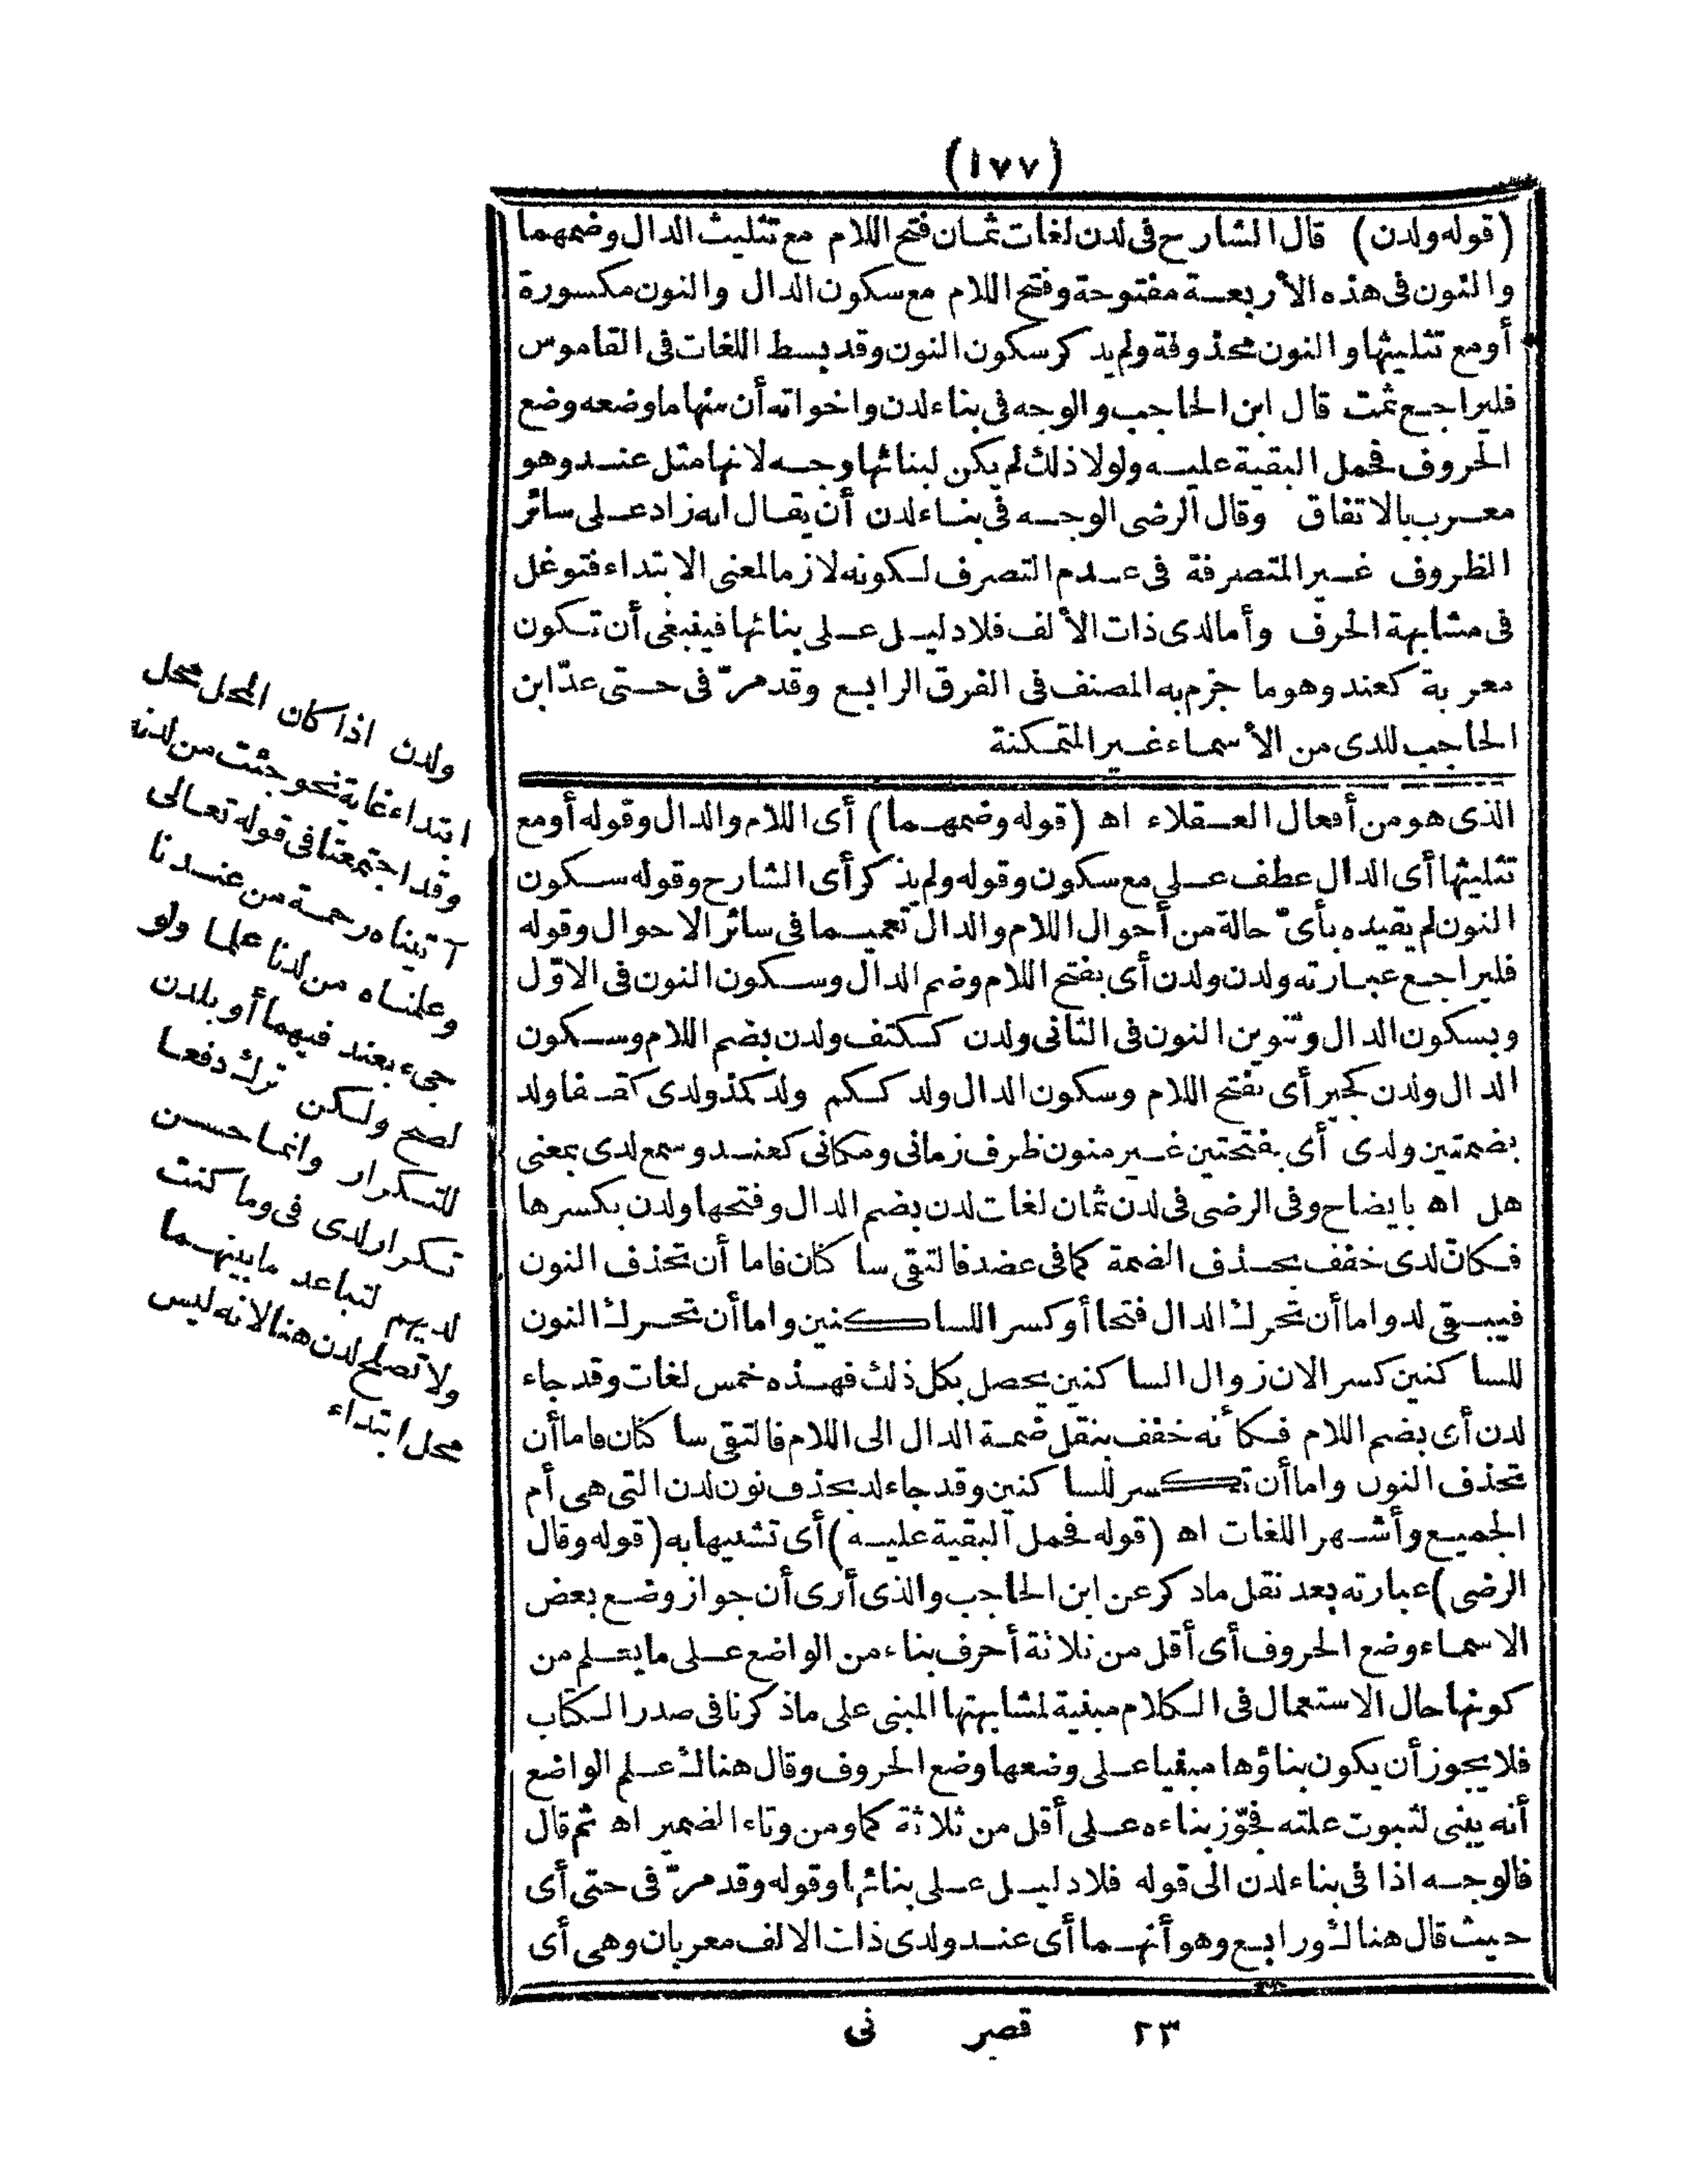 (١٧٧)
(قوله ولدن) قال الشارح فى لدن لغات ثمان فتح اللام مع تثليث الدال وضمهما
والنون فى هذه الأربعة مفتوحة وفتح اللام مع سكون الدال والنون مكسورة
أو مع تثليثها والنون محذوفة ولم يذكر سكون النون وقد بسط اللغات فى القاموس
فليراجع ثمت قال ابن الحاجب والوجه فى بناء لدن واخواته أن منها ما وضعه وضع
الحروف فحمل البقية عليه ولولا ذلك لم يكن لبنائها وجه لانها مثل عند وهو
معرب بالاتفاق وقال الرضى الوجه فى بناء لدن أن يقال انه زاد على سائر
الظروف غير المتصرفة فى عدم التصرف لكونه لازما لمعنى الابتداء فتوغل
فى مشابهة الحرف وأما لدى ذات الألف فلا دليل على بنائها فينبغى أن تكون
معربة كعند وهو ما جزم به المصنف فى الفرق الرابع وقد مرّ فى حتى عدّ ابن
الحاجب للدى من الأسماء غير المتمكنة
الذى هو من أفعال العقلاء اه (قوله وضمهما) أى اللام والدال وقوله أو مع
تثليثها أى الدال عطف على مع سكون وقوله ولم يذكر أى الشارح وقوله سكون
النون لم يقيده بأىّ حالة من أحوال اللام والدال تعميما فى سائر الاحوال وقوله
فليراجع عبارته ولدن ولدن أى بفتح اللام وضم الدال وسكون النون فى الاوّل
وبسكون الدال وتنوين النون فى الثانى ولدن ككتف ولدن بضم اللام وسكون
الدال ولدن كجير أى بفتح اللام وسكون الدال ولد ككم ولد كمذ ولدى كقفا ولد
بضمتين ولدى أى بفتحتين غير منون ظرف زمانى ومكانى كعند وسمع لدى بمعنى
هل اه بايضاح وفى الرضى فى لدن ثمان لغات لدن بضم الدال وفتحها ولدن بكسرها
فكانّ لدى خفف بحذف الضمة كما فى عضد فالتقى ساكنان فاما أن تحذف النون
فيبقى لد واما أن تحرك الدال فتحا أو كسرا للساكنين واما أن تحرك النون
للساكنين كسرا لان زوال الساكنين يحصل بكل ذلك فهذه خمس لغات وقد جاء
لدن أى بضم اللام فكأنه خفف بنقل ضمة الدال الى اللام فالتقى ساكنان فاما أن
تحذف النون واما أن تكسر للساكنين وقد جاء لد بحذف نون لدن التى هى أم
الجميع وأشهر اللغات اه (قوله فحمل البقية عليه) أى تشبيها به (قوله وقال
الرضى) عبارته بعد نقل ما ذكر عن ابن الحاجب والذى أرى أن جواز وضع بعض
الاسماء وضع الحروف أى أقل من ثلاثة أحرف بناء من الواضع على ما يعلم من
كونها حال الاستعمال فى الكلام مبنية لمشابهتها المبنى على ما ذكرنا فى صدر الكتاب
فلا يجوز أن يكون بناؤها مبنيا على وضعها وضع الحروف وقال هناك علم الواضع
أنه يبنى لثبوت علته فجوّز بناءه على أقل من ثلاثة كما ومن وتاء الضمير اه ثم قال
فالوجه اذا فى بناء لدن الى قوله فلا دليل على بنائها وقوله وقد مرّ فى حتى أى
حيث قال هناك ورابع وهو أنهما أى عند ولدى ذات الالف معربان وهى أى
٢٣ قصر نى
ولدن اذا كان المحل محل
ابتداء غاية نحو جئت من لدنه
وقد اجتمعتا فى قوله تعالى
آتيناه رحمة من عندنا
وعلمناه من لدنا علما ولو
جىء بعند فيهما أو بلدن
لصح ولكن ترك دفعا
للتكرار وانما حسن
تكرار لدى فى وما كنت
لديهم لتباعد ما بينهما
ولا تصلح لدن هنا لانه ليس
محل ابتداء